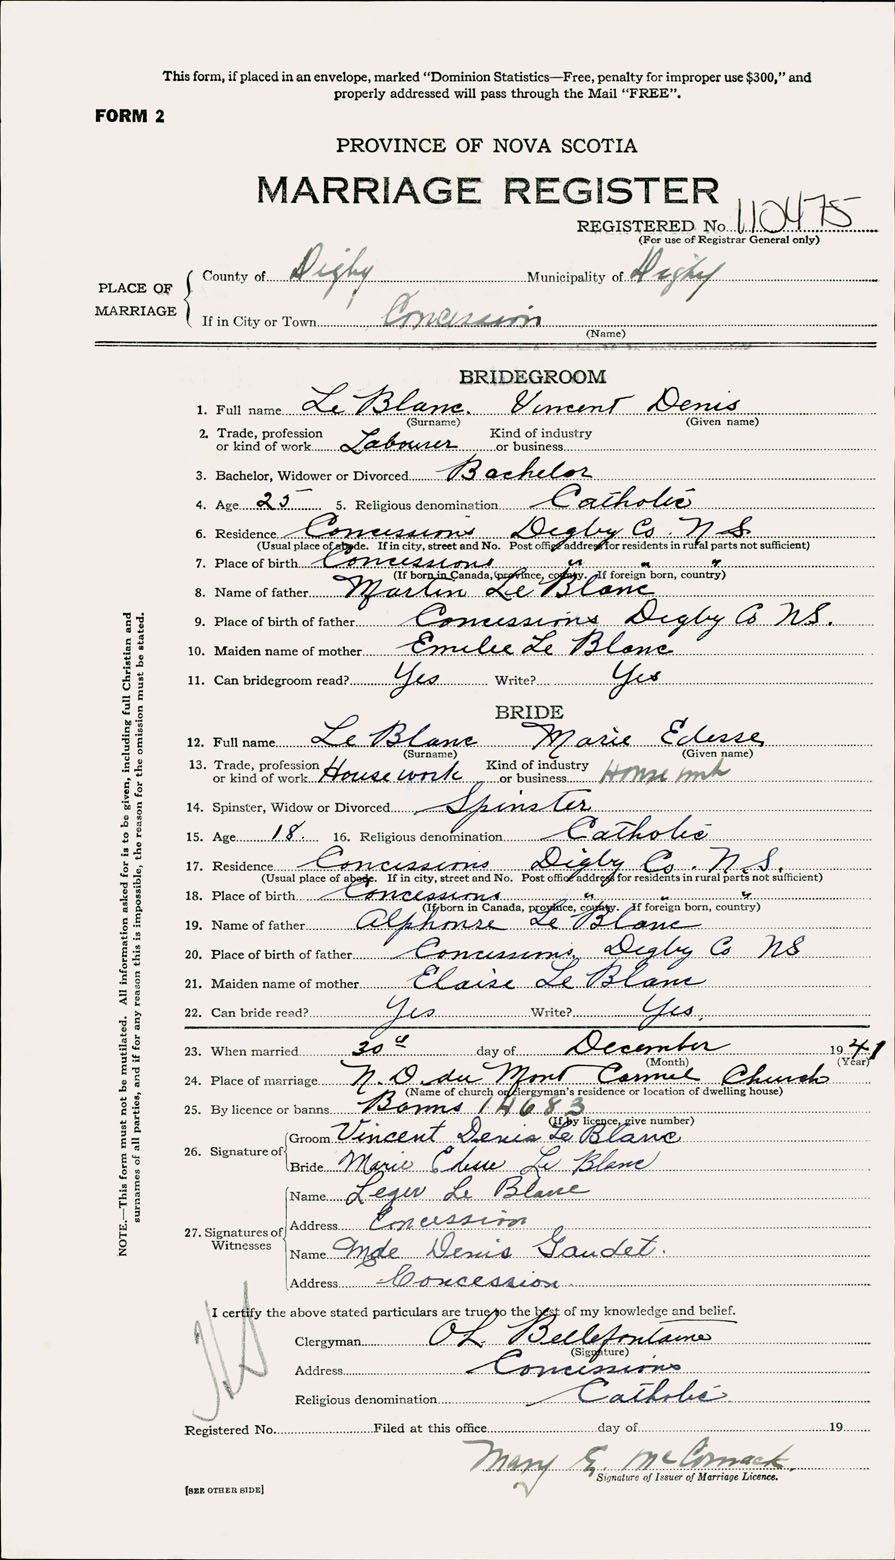 This form, if placed in an envelope, marked “Dominion Statistics—Free, penalty for improper use $300,” and
properly addressed will pass through the Mail “FREE”.
FORM 2
PROVINCE OF NOVA SCOTIA
MARRIAGE REGISTER
REGISTERED No. 110475
(For use of Registrar General only)
PLACE OF MARRIAGE
County of Digby Municipality of Digby
If in City or Town Concession
(Name)
BRIDEGROOM
1. Full name Le Blanc. Vincent Denis
(Surname) (Given name)
2. Trade, profession or kind of work Labourer Kind of industry or business
3. Bachelor, Widower or Divorced Bachelor
4. Age 25 5. Religious denomination Catholic
6. Residence Concessions Digby Co. N.S.
(Usual place of abode. If in city, street and No. Post office address for residents in rural parts not sufficient)
7. Place of birth Concessions " " "
(If born in Canada, province, county. If foreign born, country)
8. Name of father Martin Le Blanc
9. Place of birth of father Concessions Digby Co NS.
10. Maiden name of mother Emilie Le Blanc
11. Can bridegroom read? Yes Write? Yes
BRIDE
12. Full name Le Blanc Marie Edesse
(Surname) (Given name)
13. Trade, profession or kind of work Housework Kind of industry or business Housework
14. Spinster, Widow or Divorced Spinster
15. Age 18. 16. Religious denomination Catholic
17. Residence Concessions Digby Co. N.S.
(Usual place of abode. If in city, street and No. Post office address for residents in rural parts not sufficient)
18. Place of birth Concessions " " "
(If born in Canada, province, county. If foreign born, country)
19. Name of father Alphonse Le Blanc
20. Place of birth of father Concessions Digby Co NS
21. Maiden name of mother Elaise Le Blanc
22. Can bride read? Yes Write? Yes.
23. When married 30th day of December 1941
(Month) (Year)
24. Place of marriage N. D. du Mont Carmel Church
(Name of church or clergyman's residence or location of dwelling house)
25. By licence or banns Banns 14683
(If by licence, give number)
26. Signature of
Groom Vincent Denis Le Blanc
Bride Marie Le Blanc
27. Signatures of Witnesses
Name Leger Le Blanc
Address Concession
Name Mde Denis Gaudet.
Address Concession
I certify the above stated particulars are true to the best of my knowledge and belief.
Clergyman OL Bellefontaine
(Signature)
Address Concessions
Religious denomination Catholic
Registered No. Filed at this office day of 19
Mary E. McCormack.
Signature of Issuer of Marriage Licence.
[SEE OTHER SIDE]
NOTE.—This form must not be mutilated. All information asked for is to be given, including full Christian and
surnames of all parties, and if for any reason this is impossible, the reason for the omission must be stated.